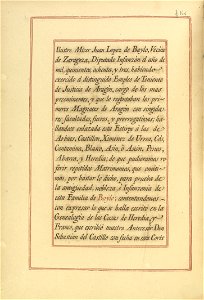 Ilustre Micer Juan Lopez de Baylo, Vicino
de Zaragoza, Diputado Infanzon el año de
mil, quinientos, ochenta, y tres, habiendo
exercido el distinguido Empleo de Teniente
de Justicia de Aragón, cargo de los mas
preeminentes, y que le regentaban los pri-
meros Magnates de Aragón con singula-
res facultades, fueros, y prerrogativas; ha-
llandose enlazada esta Estirpe à las de
Arbues, Castillon, Ximenez de Urrea,
Contamina, Blasco, Año, ò Azión, Perez,
Abarca, y Heredia; de que pudieramos re-
ferir repetidas Matrimonios, que omiti-
mos, por bastar lo dicho, para prueba de
la antiguedad, nobleza è Infanzonia de
esta Familia de Baylo; contentandonos
con expresar lo que se halla escrito en la
Genealogia de las Casas de Heredia, y
Franci, que escribió nuestro Antecesor Don
Sebastian del Castillo con fecha en esta Corte